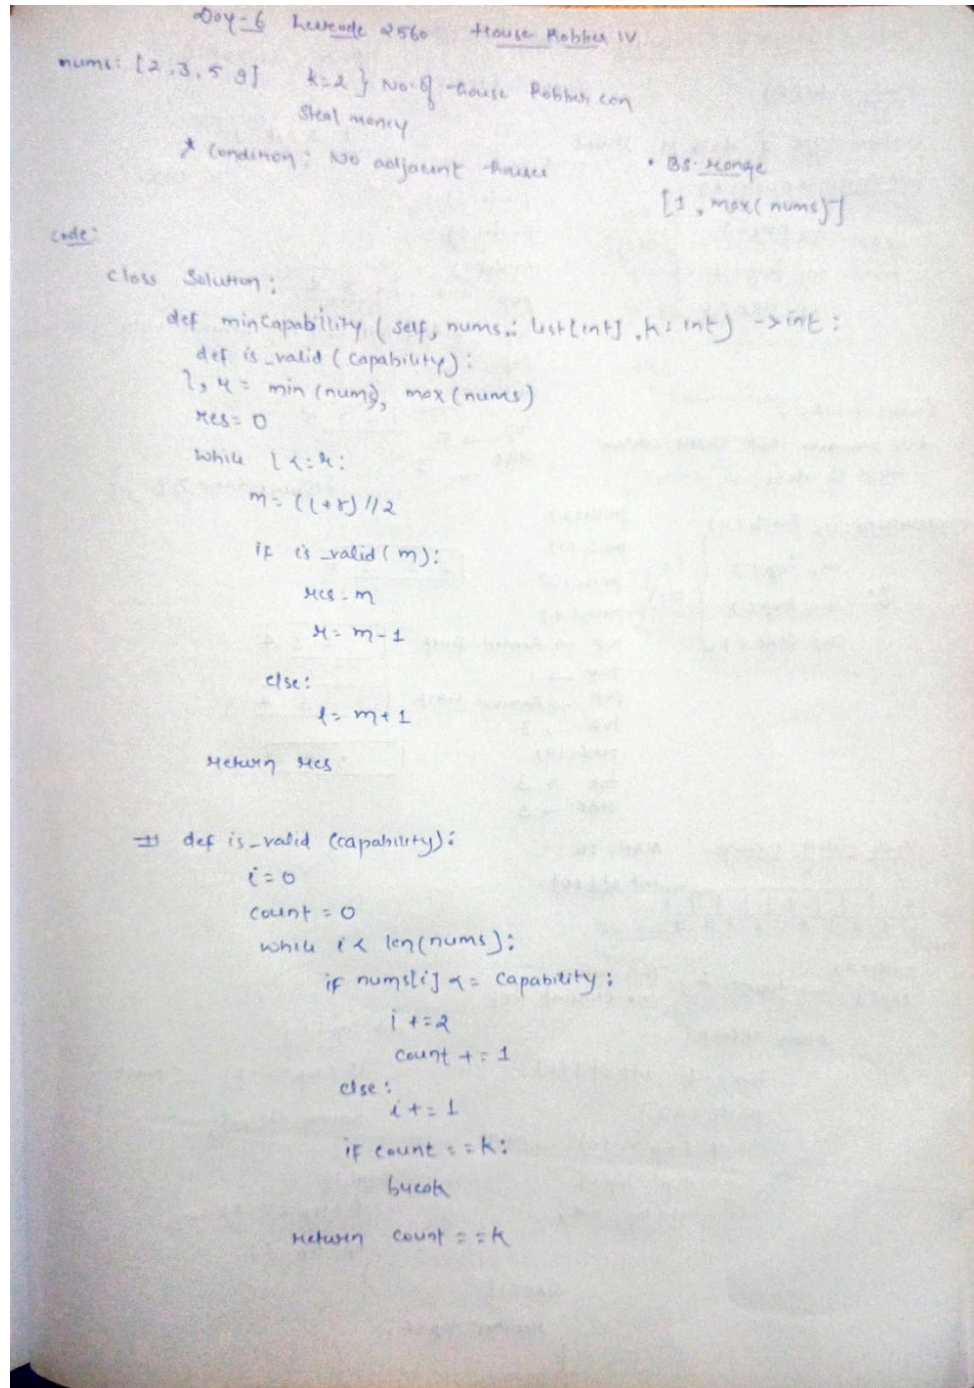 Day-6 Leetcode 2560 House Robber IV
nums: [2,3,5 9] k=2 } No. of House Robber can
Steal money
* Condition: No adjacent houses
• BS range
[1, max(nums)]
code:
class Solution:
def minCapability (self, nums: List[int], k: int) -> int:
def is_valid (capability):
l, r = min (nums), max (nums)
res = 0
while l <= r:
m = (l+r) // 2
if is_valid (m):
res = m
r = m-1
else:
l = m+1
return res
=> def is_valid (capability):
i = 0
count = 0
while i < len(nums):
if nums[i] <= capability:
i += 2
count += 1
else:
i += 1
if count == k:
break
return count == k